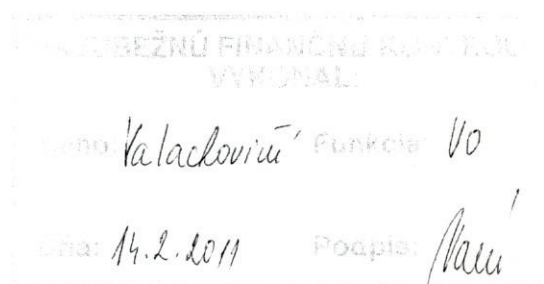 PRIEBEŽNÚ FINANČNÚ KONTROLU
VYKONAL:
Meno: Valachovič Funkcia: VO
Dňa: 14.2.2011 Podpis: